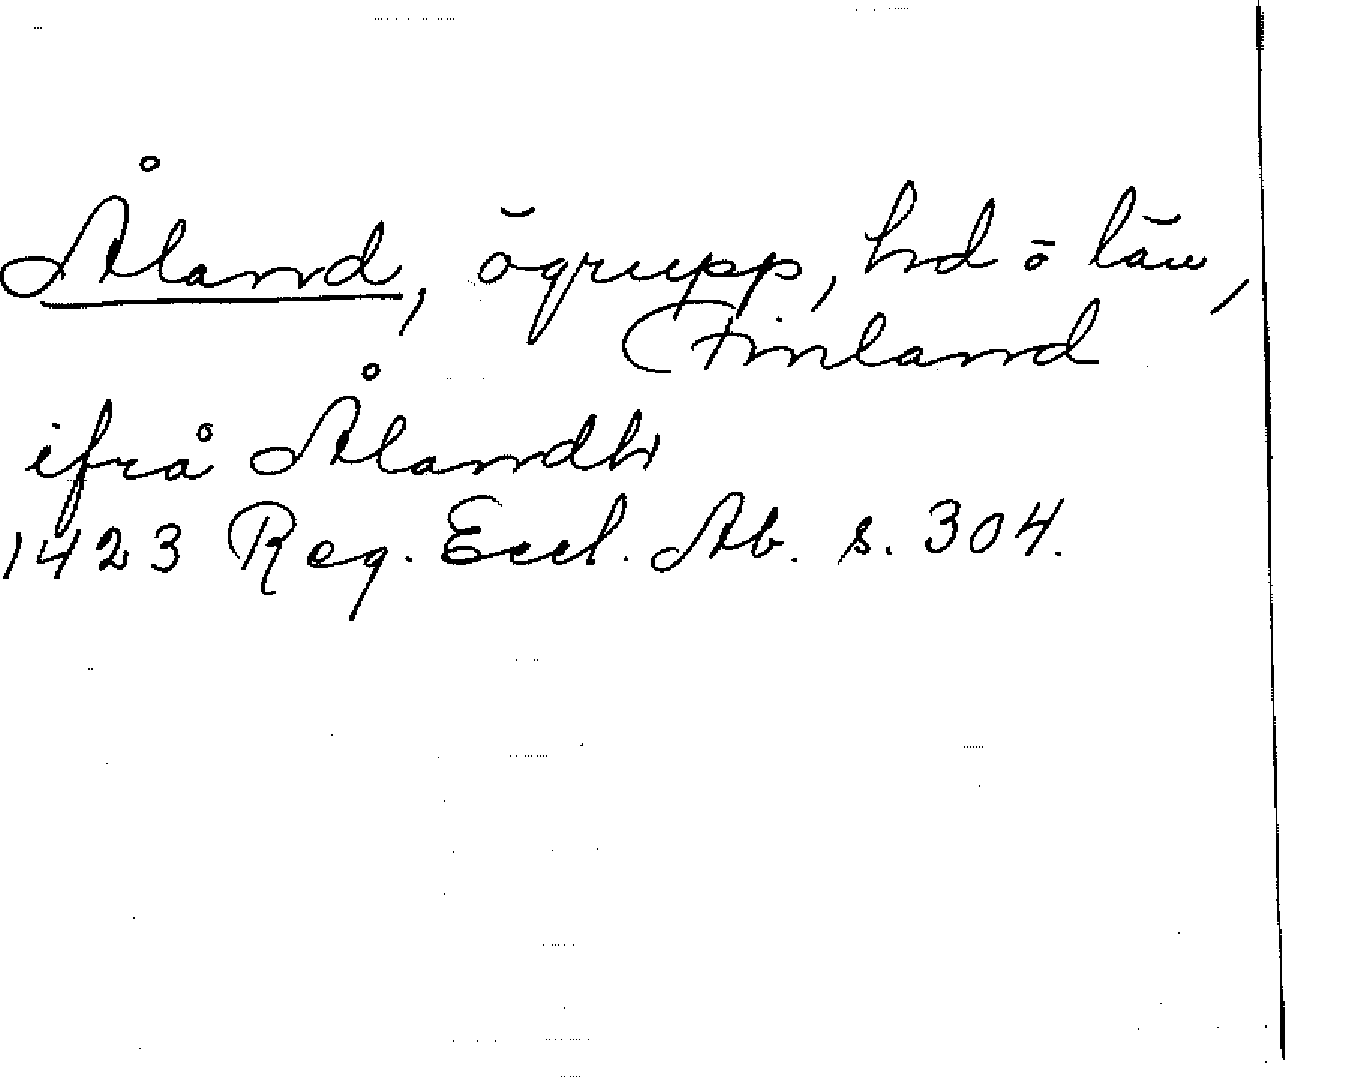 Åland, ögrupp, hd ö län,
Finland
ifrå Ålandh
1423 Reg. Eccl. Ab. s. 304.